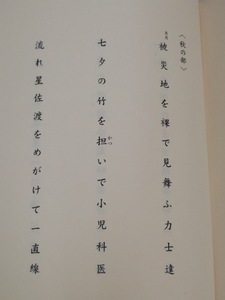 〈秋の部〉
被災地を裸で見舞ふ力士達
七夕の竹を担いで小児科医
かつ
流れ星佐渡をめがけて一直線